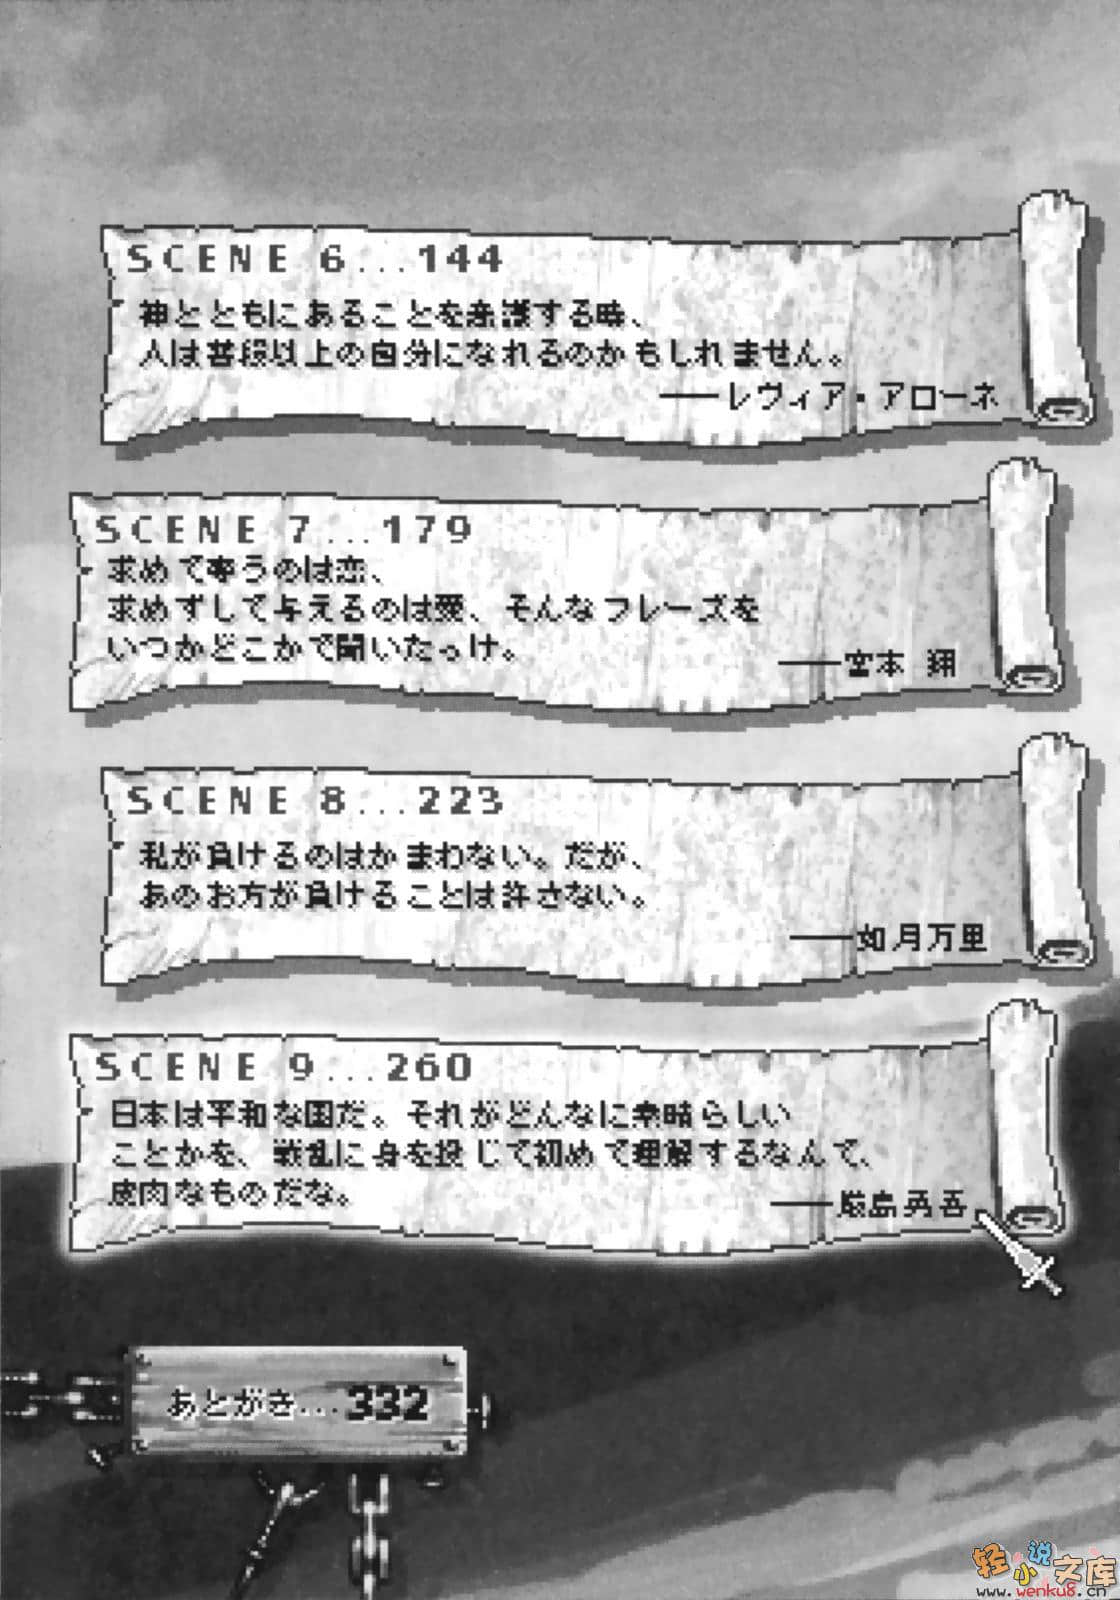 SCENE 6...144
神とともにあることを意識する時、
人は普段以上の自分になれるのかもしれません。
──レヴィア・アローネ
SCENE 7...179
求めて奪うのは恋、
求めずして与えるのは愛、そんなフレーズを
いつかどこかで聞いたっけ。
──宮本 翔
SCENE 8...223
私が負けるのはかまわない。だが、
あのお方が負けることは許さない。
──如月万里
SCENE 9...260
日本は平和な国だ。それがどんなに素晴らしい
ことかを、戦乱に身を投じて初めて理解するなんて、
皮肉なものだな。
──厳島勇吾
あとがき...332
轻小说文库
www.wenku8.cn